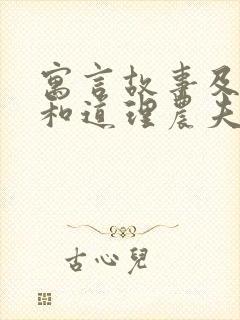 寓言故事及
和道理農夫
古心兒